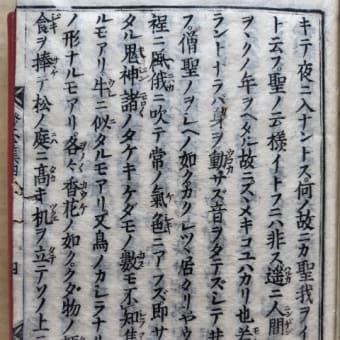 キテ夜ニ入ナントス。何ノ故ニカ聖我ヲイ
ト云フ。聖ノ云樣イトフニハ非ス遥ニ人間
ヲヽクノ年ヲヘタル故ニスヽメキコユハカリ也若
ラントナラバ身ヲ動サズ音ヲタテズシテ
フ。僧聖ノヲシヘノ如クカクレツヽ居タリヤウ
程ニ風俄ニ吹テ常ノ氣色ニアラズ即サ
タル鬼神諸ノタケキケダモノ數モ不知集
ルモアリ牛ニ似タルモアリ又鳥ノカシラナル
ノ形ナルモアリ各々香花ノ如クダ物ノ
食ヲ捧テ松ノ庭ニ高キ机ヲ立テソノ上ニ